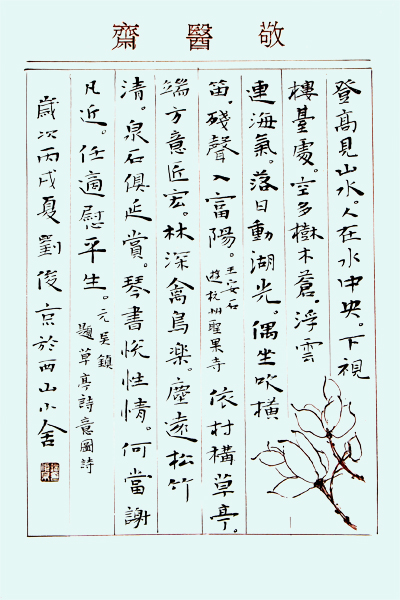 敬醫齋
登高見山水。人在水中央。下視
樓臺處。空多樹木蒼。浮雲
連海氣。落日動湖光。偶坐吹橫
笛。殘聲入富陽。王安石
遊杭州聖果寺
依村構草亭。
端方意匠宏。林深禽鳥樂。塵遠松竹
清。泉石俱延賞。琴書悅性情。何當謝
凡近。任適慰平生。元吳鎮
題草亭詩意圖詩
歲次丙戌夏劉俊京於西山小舍